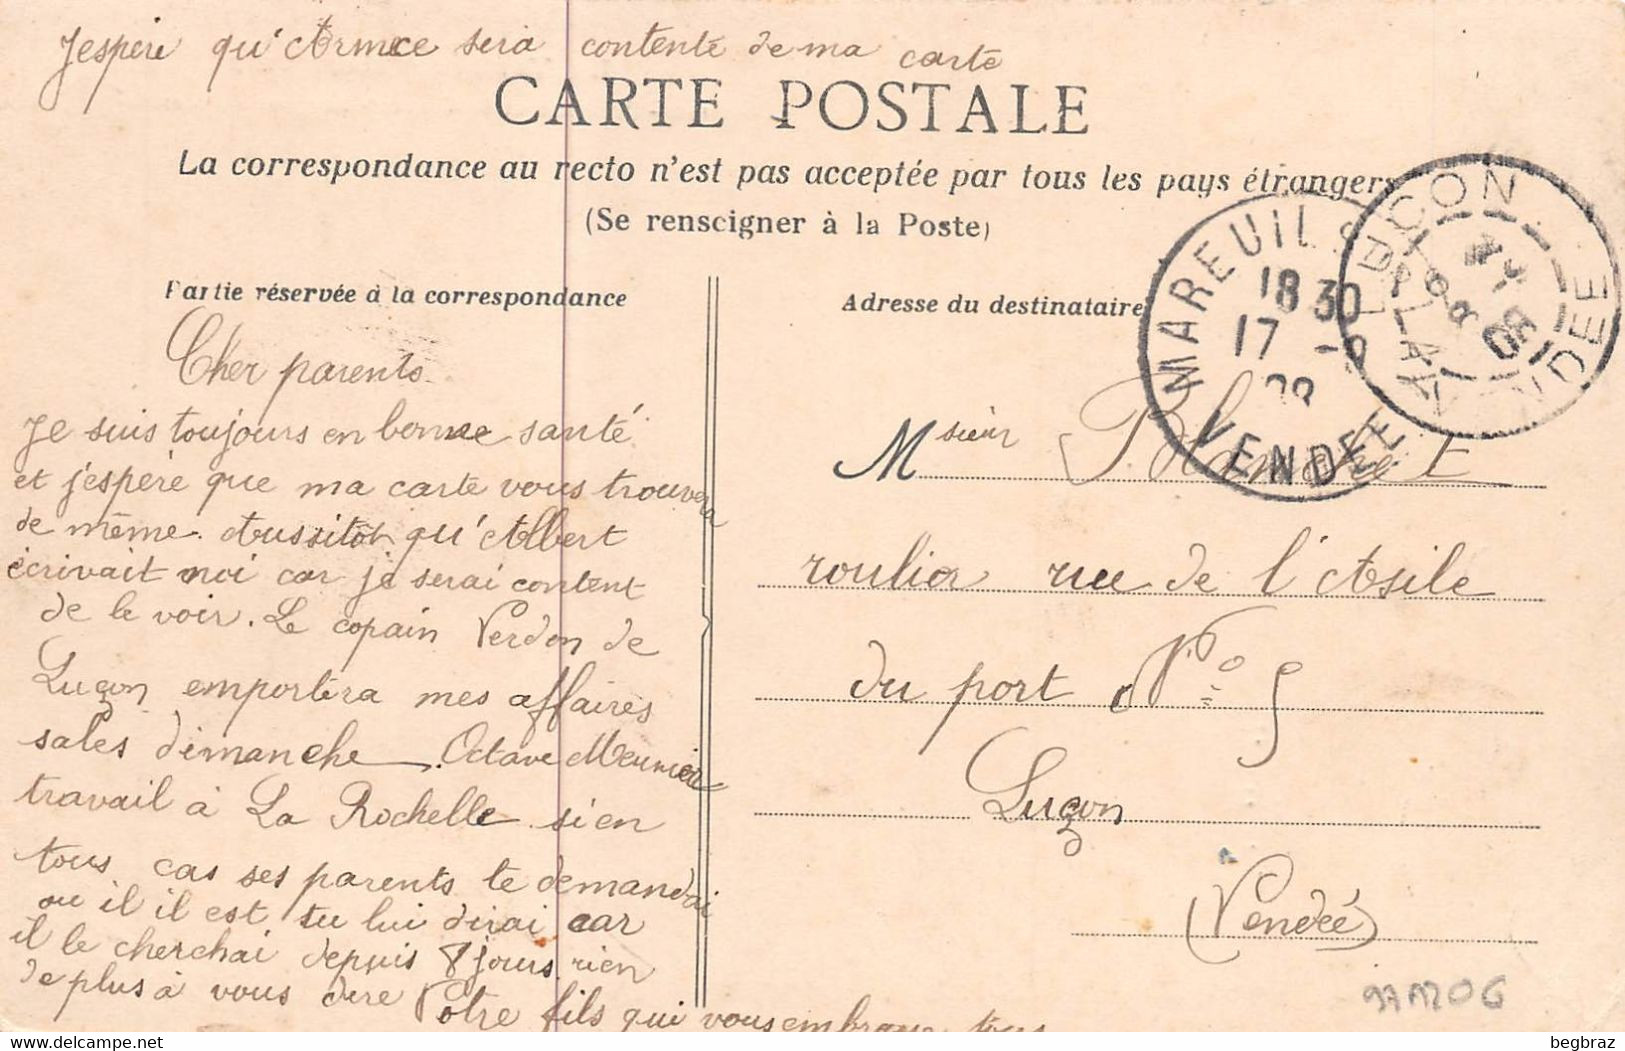 Jespére qu'Armce sera contente de ma carte
CARTE POSTALE
La correspondance au recto n'est pas acceptée par tous les pays étrangers
(Se renseigner à la Poste)
Partie réservée à la correspondance
Cher parents
Je suis toujours en bonne santé
et j'espère que ma carte vous trouvera
de même. Aussitôt qu'Albert
écrivait moi car je serai content
de le voir. Le copain Verdon de
Luçon emportera mes affaires
sales dimanche. Octave Meunier
travail à La Rochelle si en
tous cas ses parents te demandai
ou il il est tu lui dirai car
il le cherchai depuis 8 jours rien
de plus à vous dire Votre fils qui vous embrasse tous
Adresse du destinataire
MAREUIL
18 30
17
VENDEE
LUÇON
VENDEE
Msieur P. Blanchet
roulier rue de l'Asile
du port No 5
Luçon
(Vendée)
begbraz